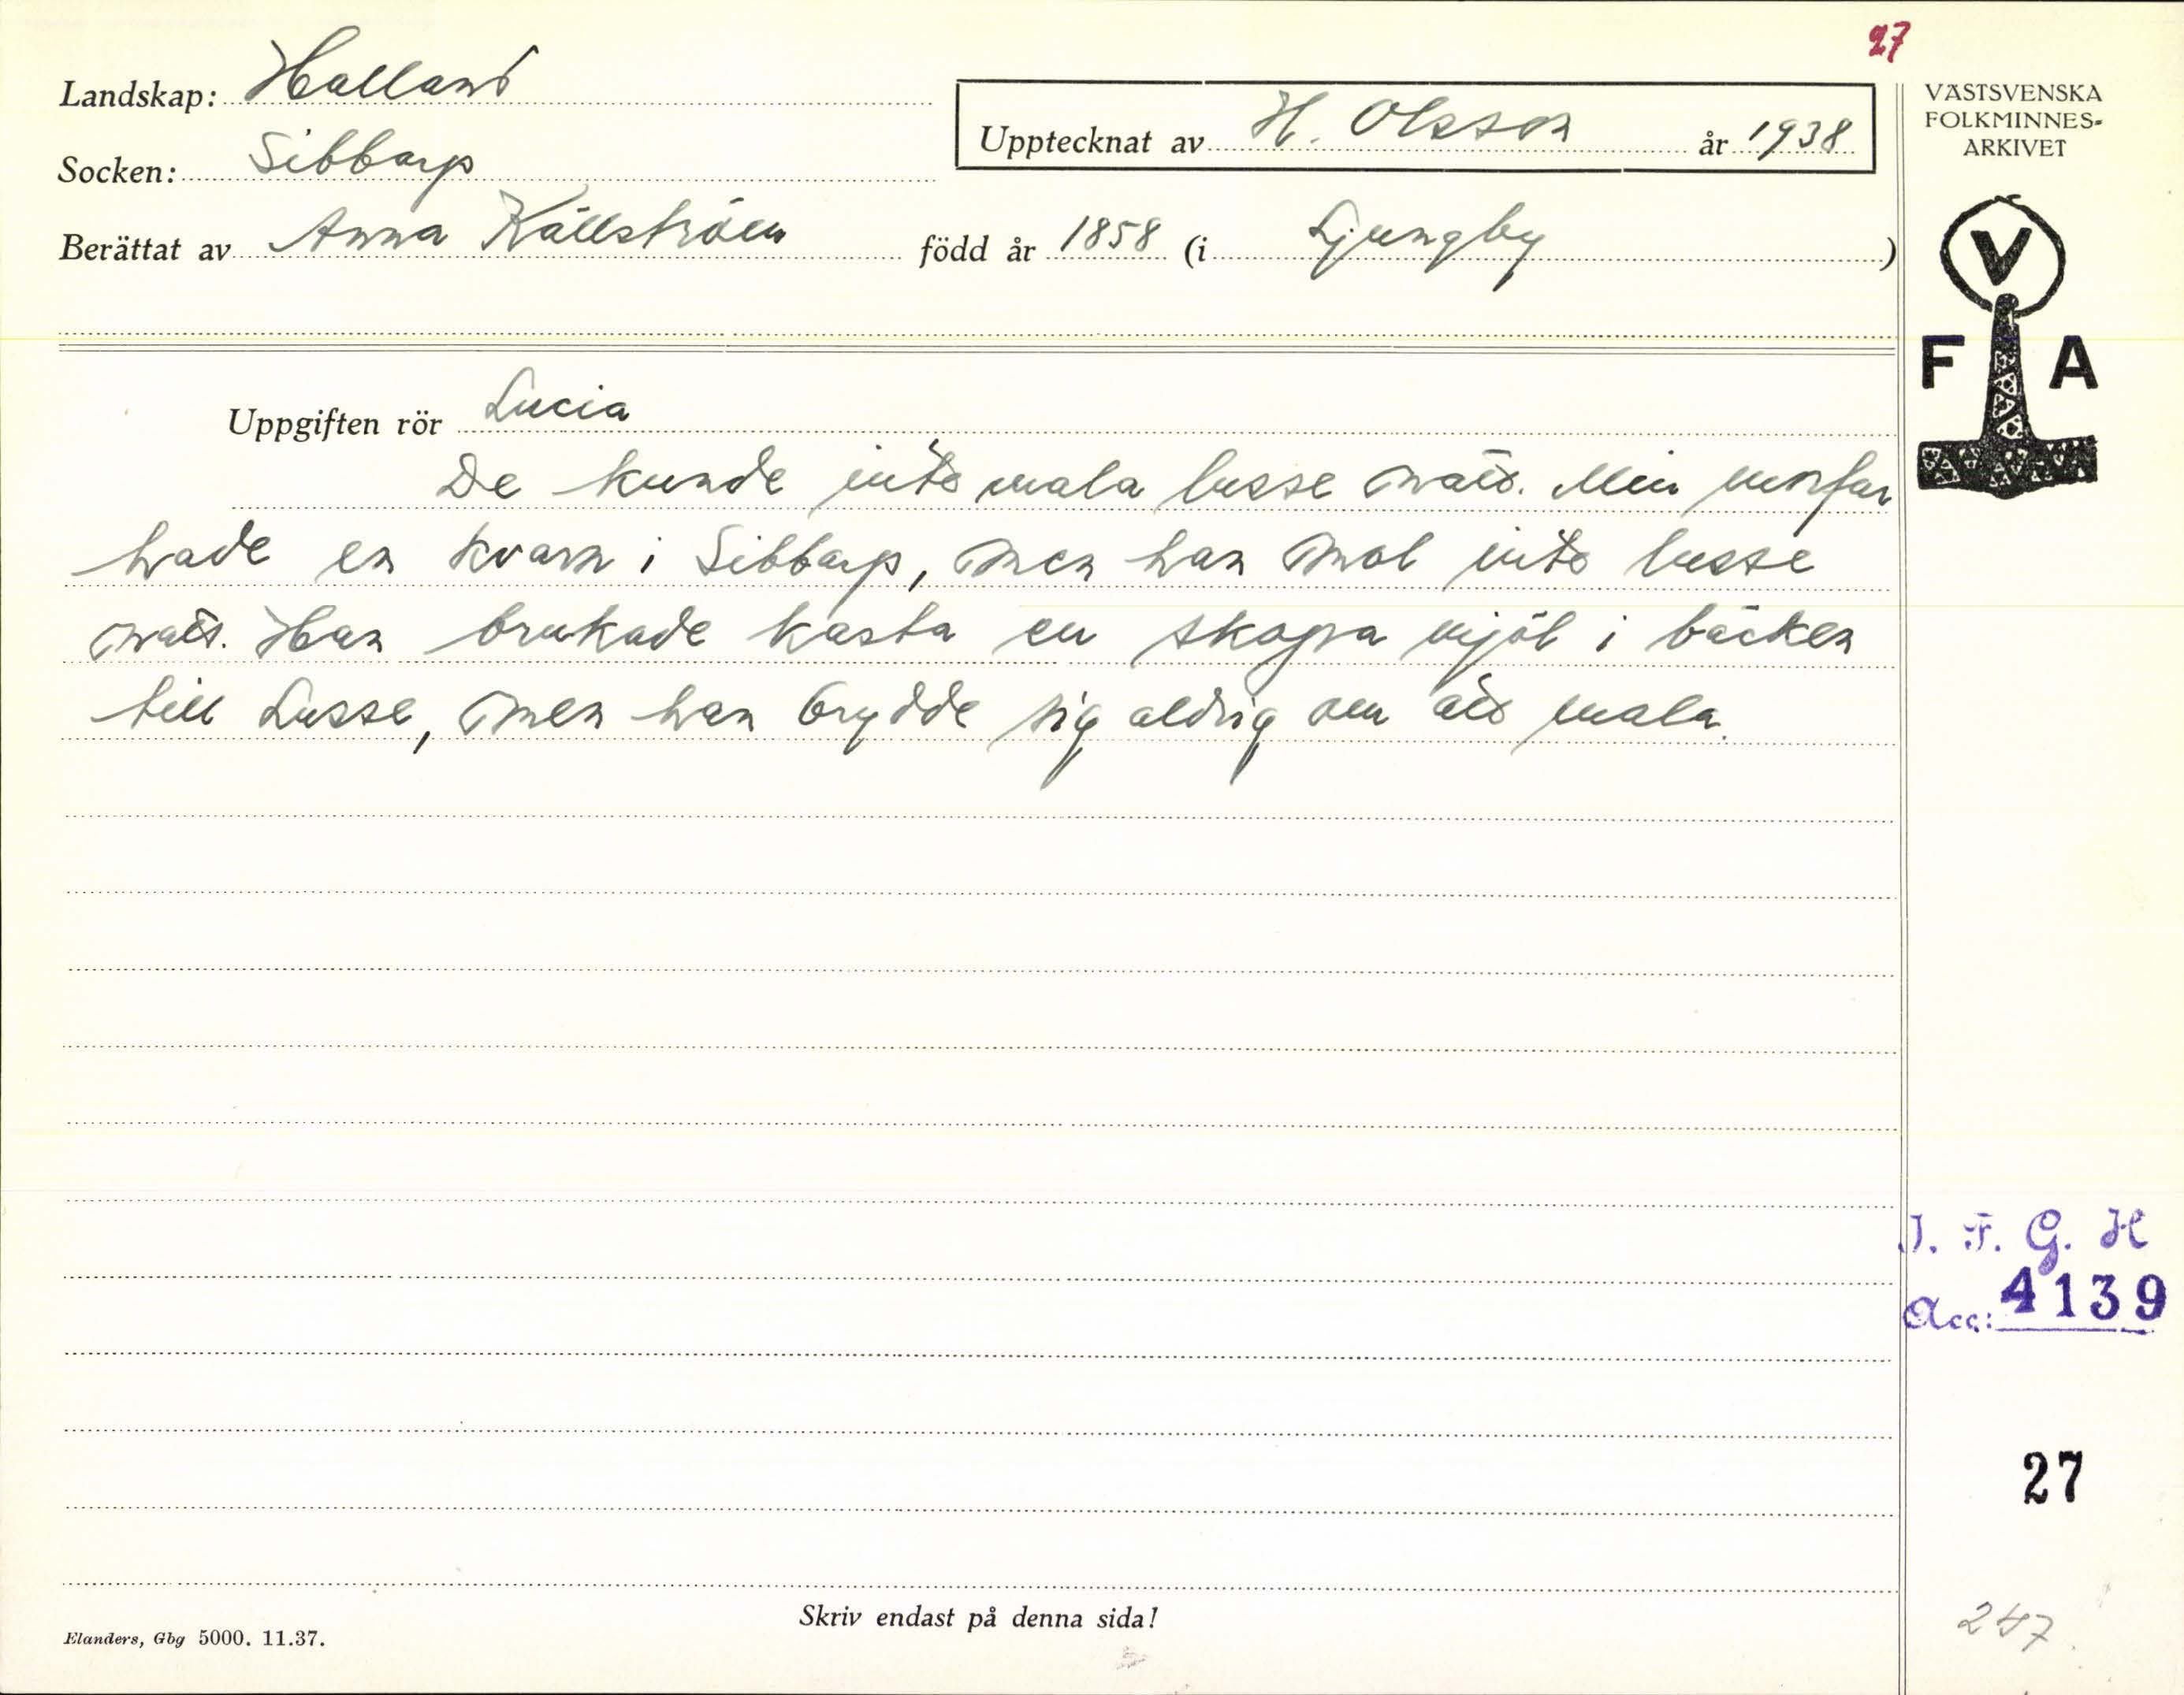 27
Landskap: Halland
Socken: Sibbarp
Upptecknat av H. Olsson år 1938
Berättat av Anna Källström född år 1858 (i Ljungby)
VÄSTSVENSKA
FOLKMINNES-
ARKIVET
V
F A
Uppgiften rör Lucia
De kunde inte mala lusse natt. Min morfar
hade en kvarn i Sibbarp, men han mol inte lusse
natt. Han brukade kasta en skopa mjöl i bäcken
till Lusse, men han brydde sig aldrig om att mala.
I. F. G. H
Acc: 4139
27
Skriv endast på denna sida!
Elanders, Gbg 5000. 11.37.
247.